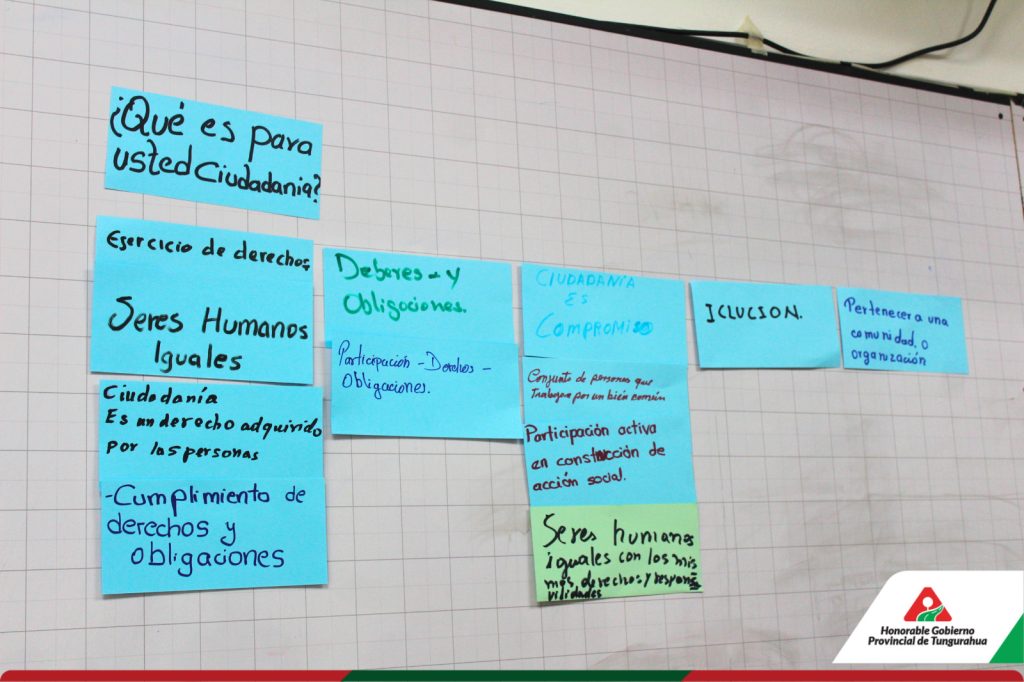 ¿Qué es para
usted Ciudadania?
Ejercicio de derechos
Seres Humanos
Iguales
Ciudadanía
Es un derecho adquirido
por las personas
-Cumplimiento de
derechos y
obligaciones
Deberes - y
Obligaciones.
Participación - Derechos -
Obligaciones.
CIUDADANÍA
ES
COMPROMISO
Conjunto de personas que
Trabajan por un bien común
Participación activa
en construcción de
acción social.
Seres humanos
iguales con los mis
mos derechos y respons
vilidades
ICLUCION.
Pertenecer a una
comunidad, o
organización
Honorable Gobierno
Provincial de Tungurahua